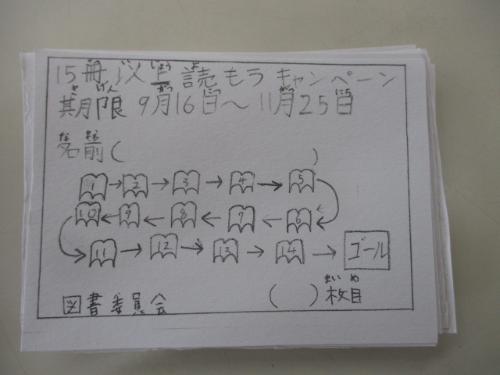 15冊以上読もうキャンペーン
期限 9月16日～11月25日
名前( )
1→2→3→4→5
10←9←8←7←6
11→12→13→14→ゴール
図書委員会 ( )枚目